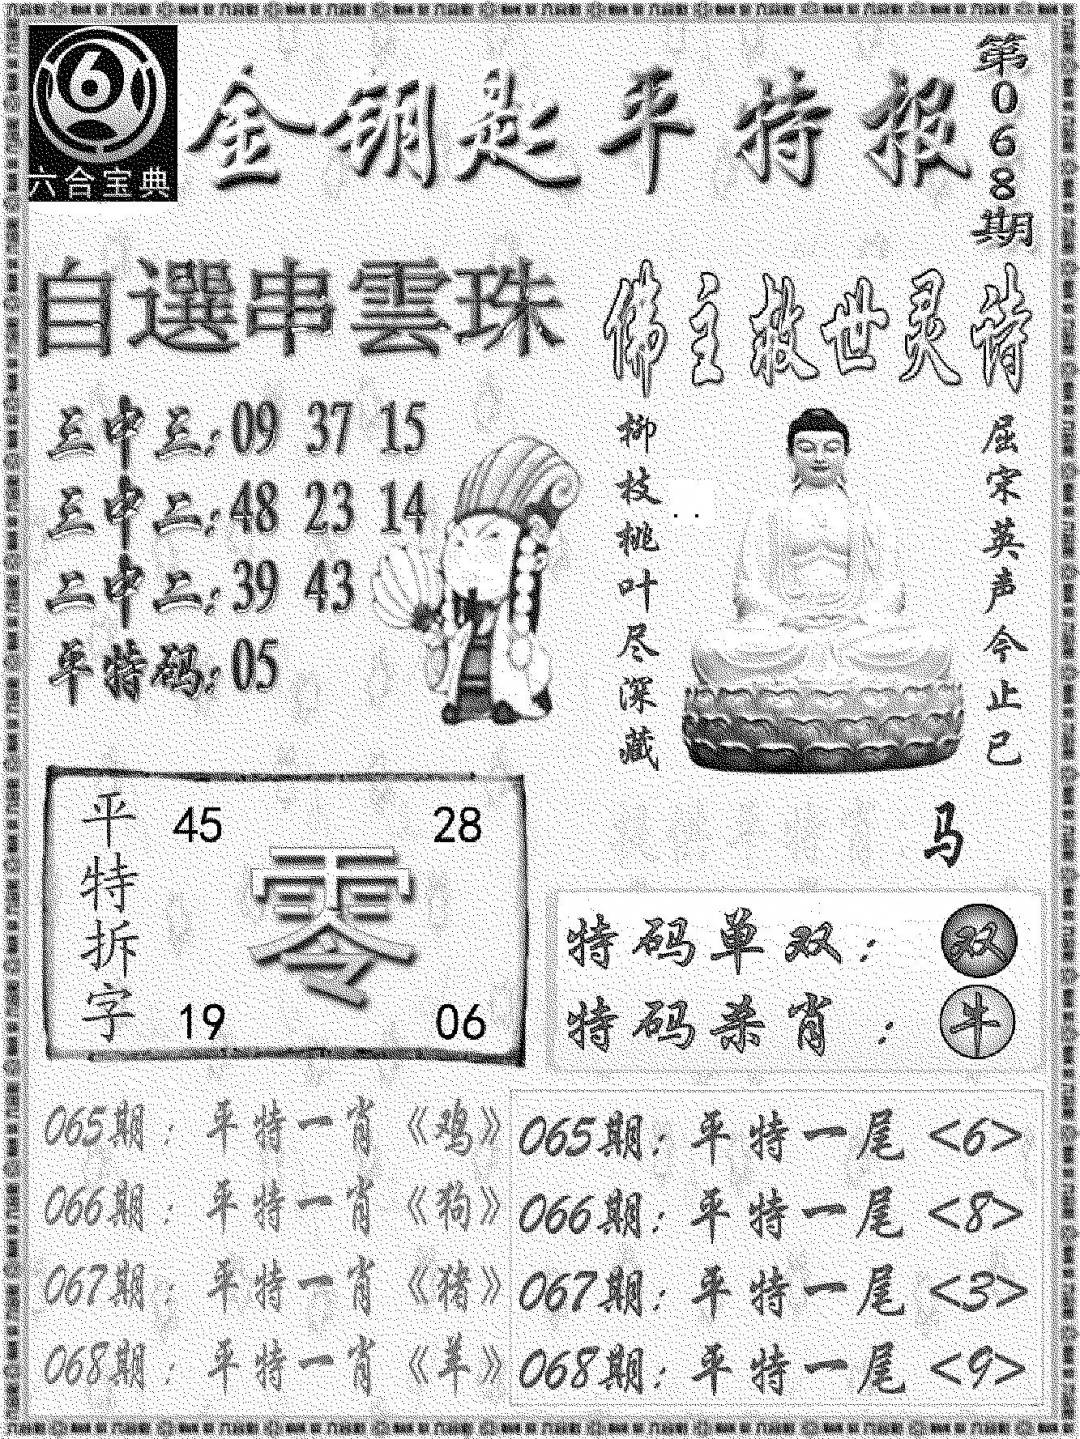 6
六合宝典
金钥匙平特报
第068期
自選串雲珠
三中三：09 37 15
三中二：48 23 14
二中二：39 43
平特码：05
佛主救世灵诗
柳枝桃叶尽深藏
屈宋英声今止已
马
平特拆字
45 28
零
19 06
特码单双：双
特码杀肖：牛
065期：平特一肖《鸡》
066期：平特一肖《狗》
067期：平特一肖《猪》
068期：平特一肖《羊》
065期：平特一尾<6>
066期：平特一尾<8>
067期：平特一尾<3>
068期：平特一尾<9>